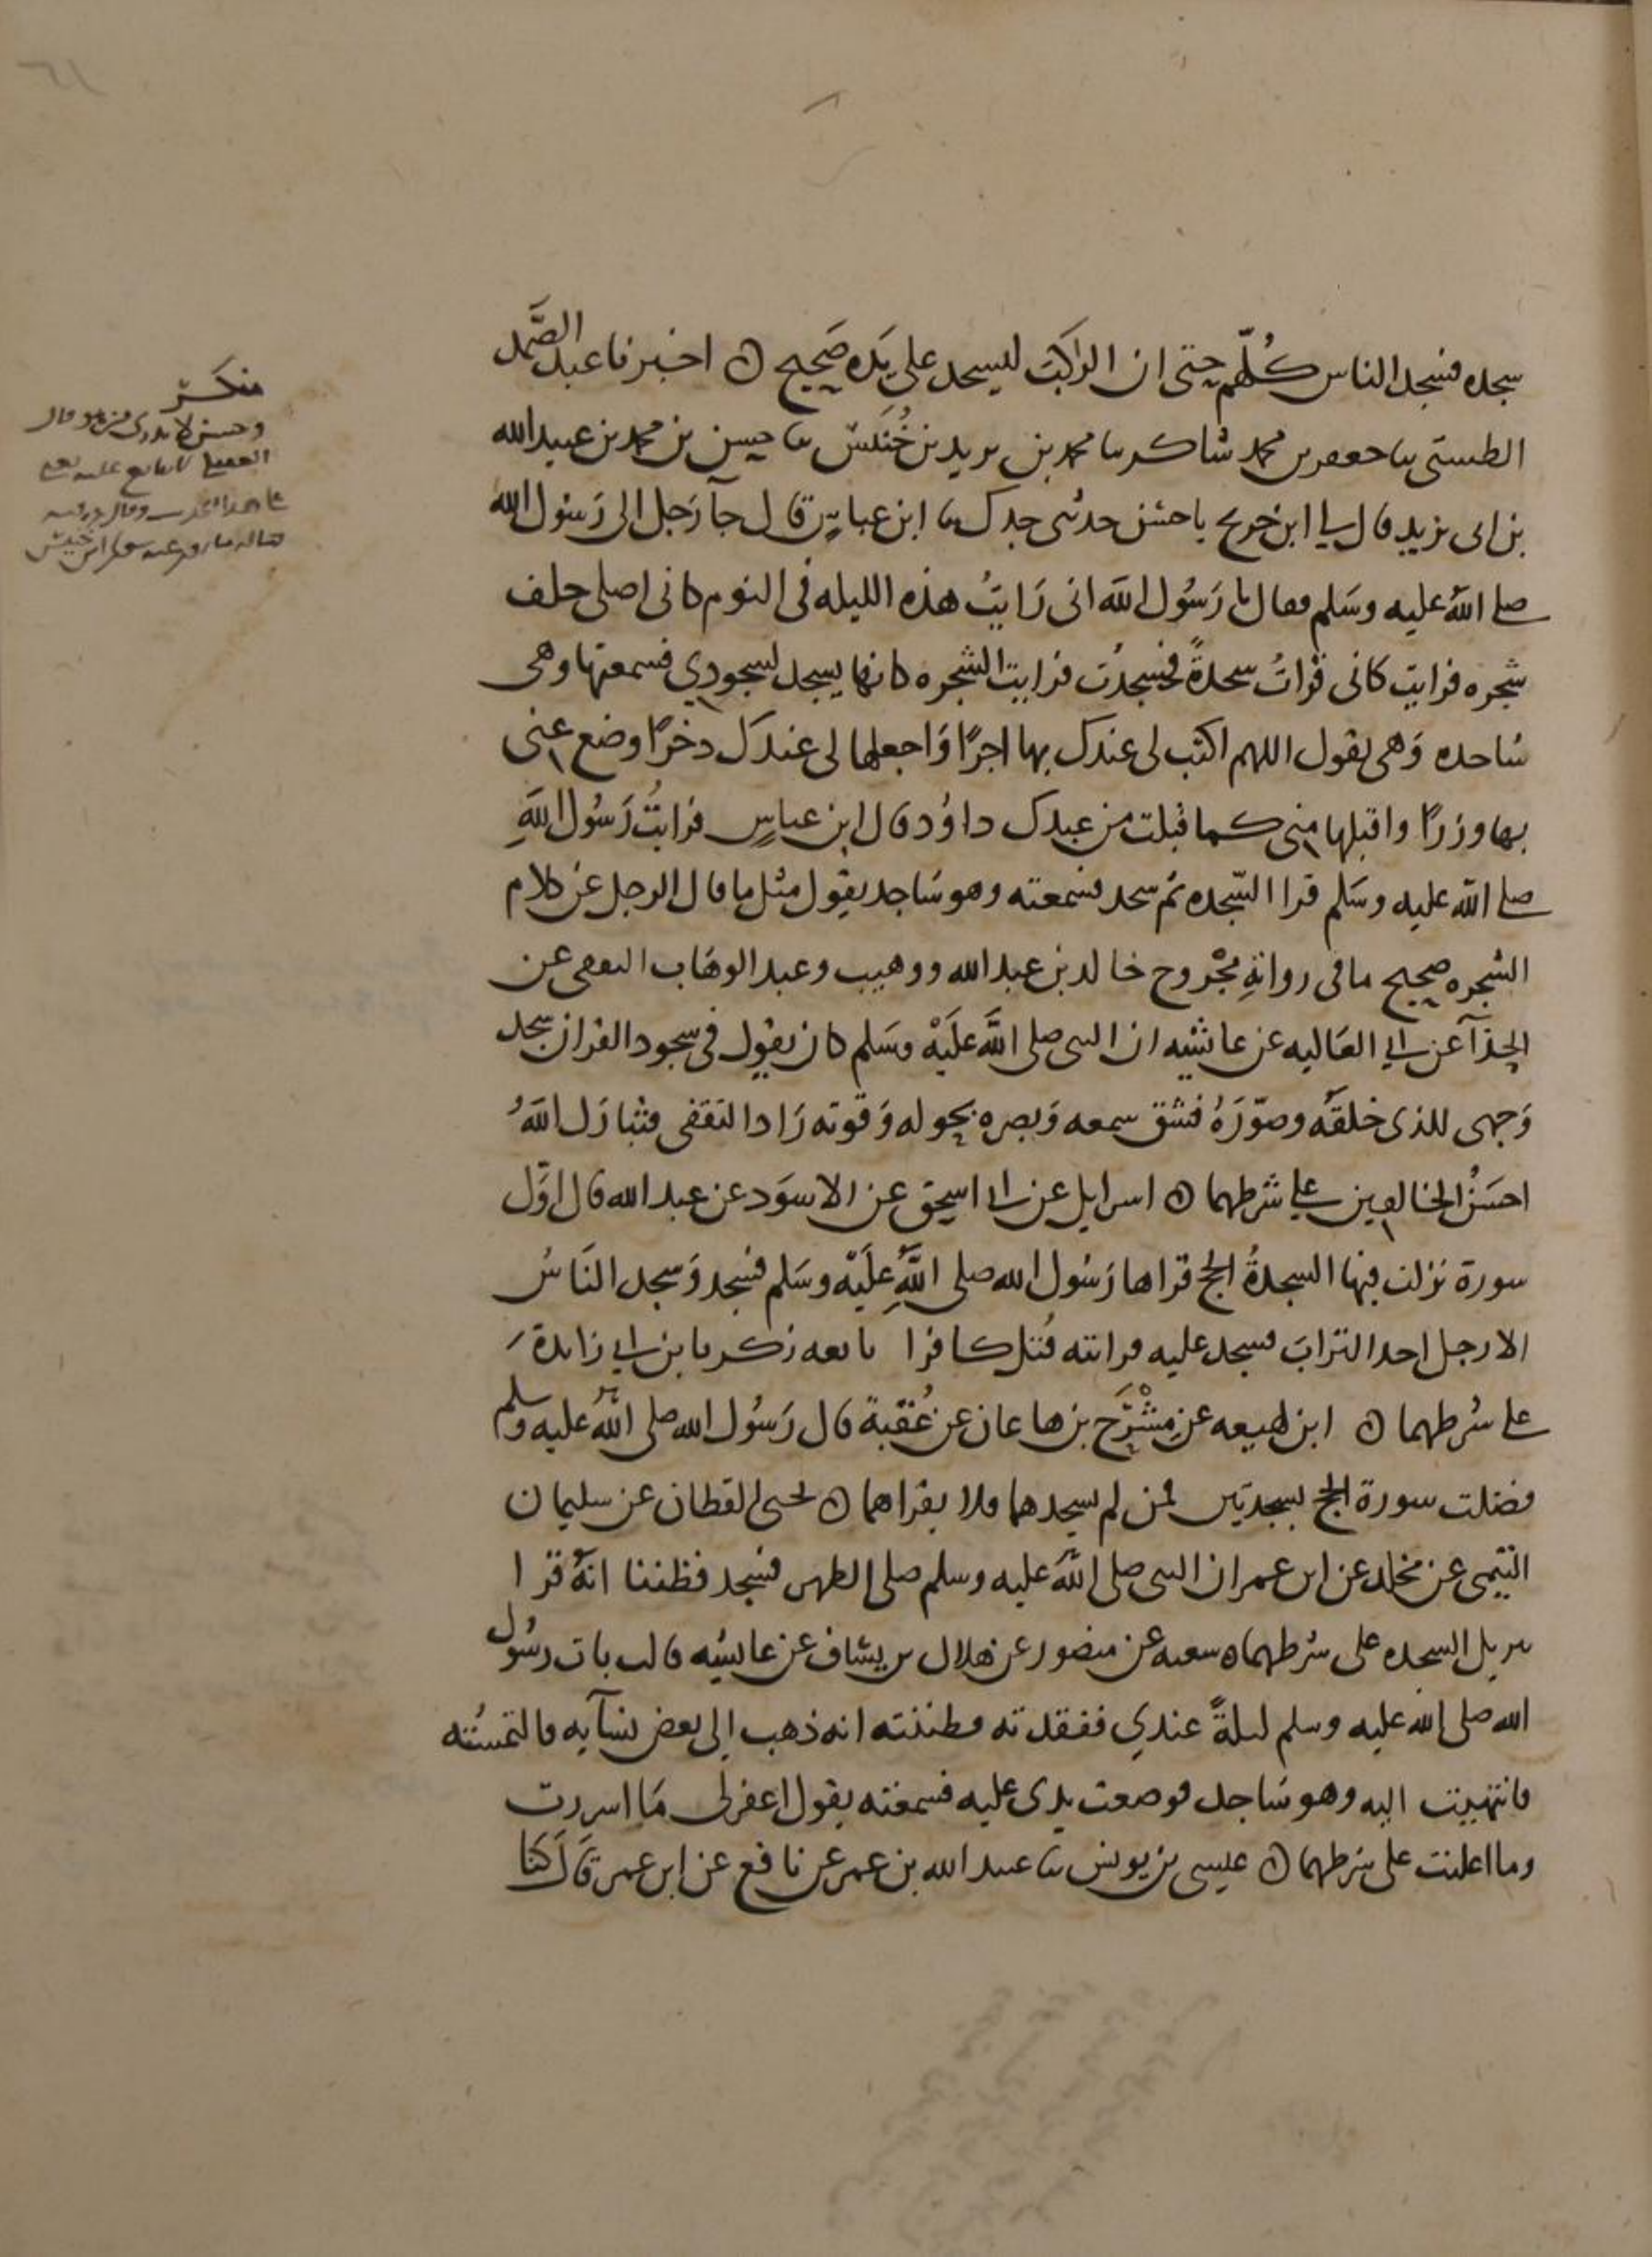 سجده فسجد الناس كُلّهم حتى ان الراكب ليسجد على يَده صَحيح ه اخبرنا عبد الصَّمد
الطستى سا جعفر بن محمد شاكر سا محمد بن يريد بن خُنَيس سا حسن بن محمد بن عبيد الله
بن ابى يزيد قال لي ابن جريج يا حسن حدثنى جدك سا ابن عباسٍ قال جآ رَجل الى رَسُول الله
صلى اللهُ عليه وسَلم فقال يا رَسُول الله انى رَايتُ هذه الليله فى النوم كانى اصلى خلف
شجره فرايت كانى قراتُ سجدةً فسجدت فرايت الشجره كانها يسجد لسجودي فسمعتها وهى
ساجده وَهى تقول اللهم اكتب لى عندك بها اجرًا وَاجعلها لى عندك دخرًا وضع عنى
بها وزرًا واقبلها منى كما قبلت من عبدك داوُد قال ابن عباسٍ فرايتُ رَسُول اللهِ
صلى الله عليه وسَلم قرا السّجده ثم سجد فسمعته وهو سَاجد يقول مثل ما قال الرجل عن كلام
الشجره صحيح ما فى رواتهِ مجْروح خالد بن عبد الله ووهيب وعبد الوهاب الثقفى عن
الحذآ عن ابي العَاليه عن عائشه ان النبى صلى اللَّه علَيْه وسَلم كان يقول فى سجود القران سجد
وَجهى للذى خلقَهُ وصوّرَهُ فشق سمعه وَبصره بحوله وَقوته زَاد الثقفى فتبارَك اللَّهُ
احسَنُ الخالقين على شرطهما ه اسرايل عن ابى اسحق عن الاسوَد عن عبد الله قال اوّل
سورة نزلت فيها السجدةُ الحج قراها رَسُول الله صلى اللَّهِ علَيْه وسَلم فسجد وَسجد النَاسُ
الا رجل اخد الترابَ فسجد عليه فرايته قُتل كافرا تابعه زكريا بن ابي زايدةَ
على شرطهما ه ابن لهيعه عن مِشْرَح بن هاعان عن عُقبة قال رَسُول الله صلى اللهُ عليه وسلم
فضلت سورة الحج بسجدتين فمن لم يسجدهما فلا يقراهما ه يحيى القطان عن سليمان
التيمى عن مخلد عن ابن عمر ان النبى صلى اللَّه عليه وسلم صلى الظهر فسجد فظننا انهُ قرا
تنزيل السجده على شرطهما ه شعبه عن منصور عن هلال بن يساف عن عائشه قالت بات رسُول
الله صلى الله عليه وسلم ليلةً عندي ففقدته فظننته انه ذهب الى بعض نسآيه فالتمستُه
فانتهيت اليه وهو سَاجد فوضعت يدى عليه فسمعته يقول اغفر لى مَا اسررت
وما اعلنت على شرطهما ه عيسى بن يونس سا عبيد الله بن عمر عن نافع عن ابن عمر قَال كنا
منكر
وحسن لا يدرى من هو قال
العقيلى لا يتابع عليه